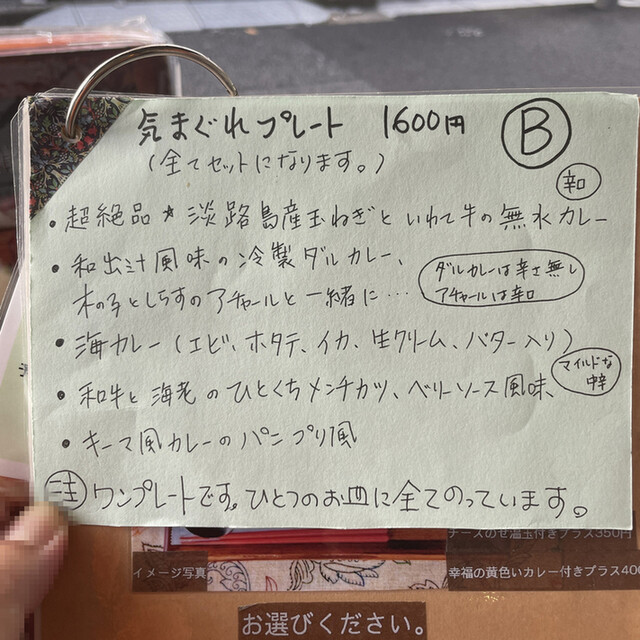 気まぐれプレート 1600円 Ⓑ
(全てセットになります。)
・超絶品★淡路島産玉ねぎといわて牛の無水カレー 辛口
・和出汁風味の冷製ダルカレー、
木の子としらすのアチャールと一緒に…
ダルカレーは辛さ無し
アチャールは辛口
・海カレー(エビ、ホタテ、イカ、生クリーム、バター入り)
マイルドな
中辛
・和牛と海老のひとくちメンチカツ、ベリーソース風味、
・キーマ風カレーのパニプリ風
注 ワンプレートです。ひとつのお皿に全てのっています。
チーズのせ温玉付きプラス350円
イメージ写真
幸福の黄色いカレー付きプラス400
お選びください。